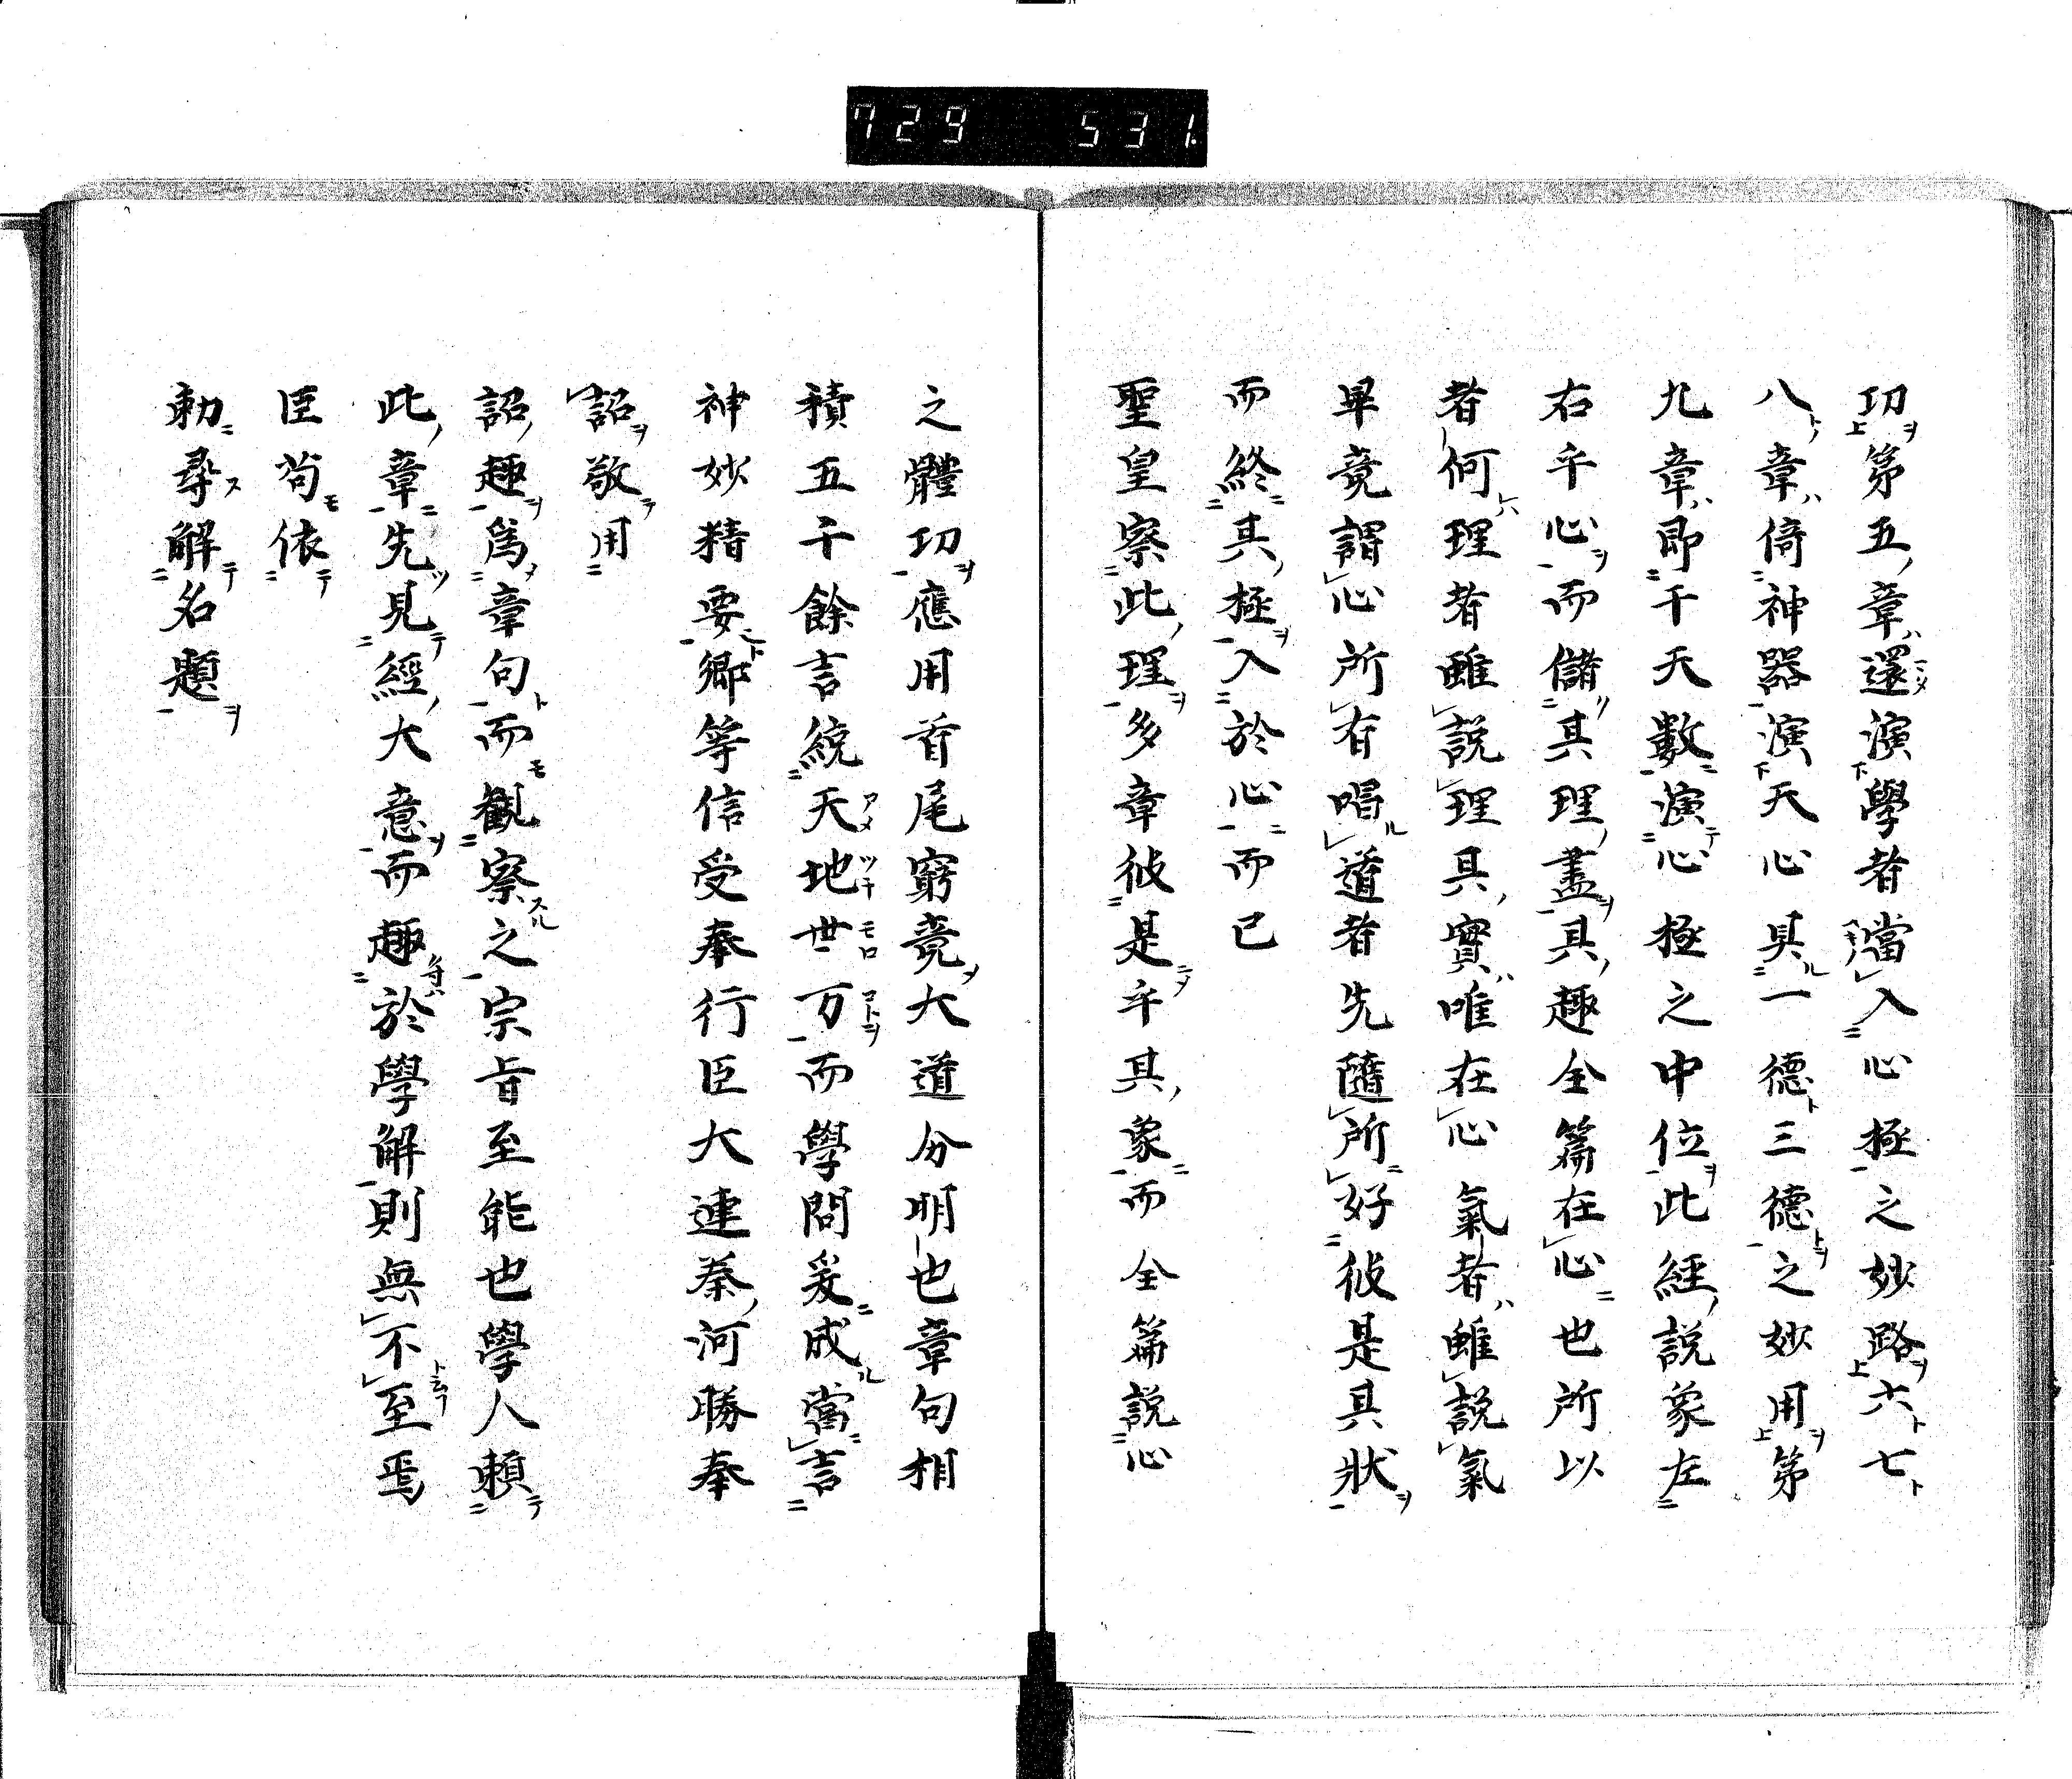 729 531.
功第五章還演學者當入心極之妙路六七
八章倚神器演天心具一德三德之妙用第
九章即于天數演心極之中位此經說象左
右乎心而儲其理盡具趣全篇在心也所以
者何理者雖說理具實唯在心氣者雖說氣
畢竟謂心所有唱道者先隨所好彼是具狀
而終其極入於心而已
聖皇察此理多章彼是乎其象而全篇說心
之體功應用首尾窮竟大道分明也章句相
積五千餘言統天地世万而學問爰成當言
神妙精要卿等信受奉行臣大連秦河勝奉
詔敬用
詔趣為章句而觀察之宗旨至能也學人賴
此章先見經大意而趣於學解則無不至焉
臣苟依
勅尋解名題